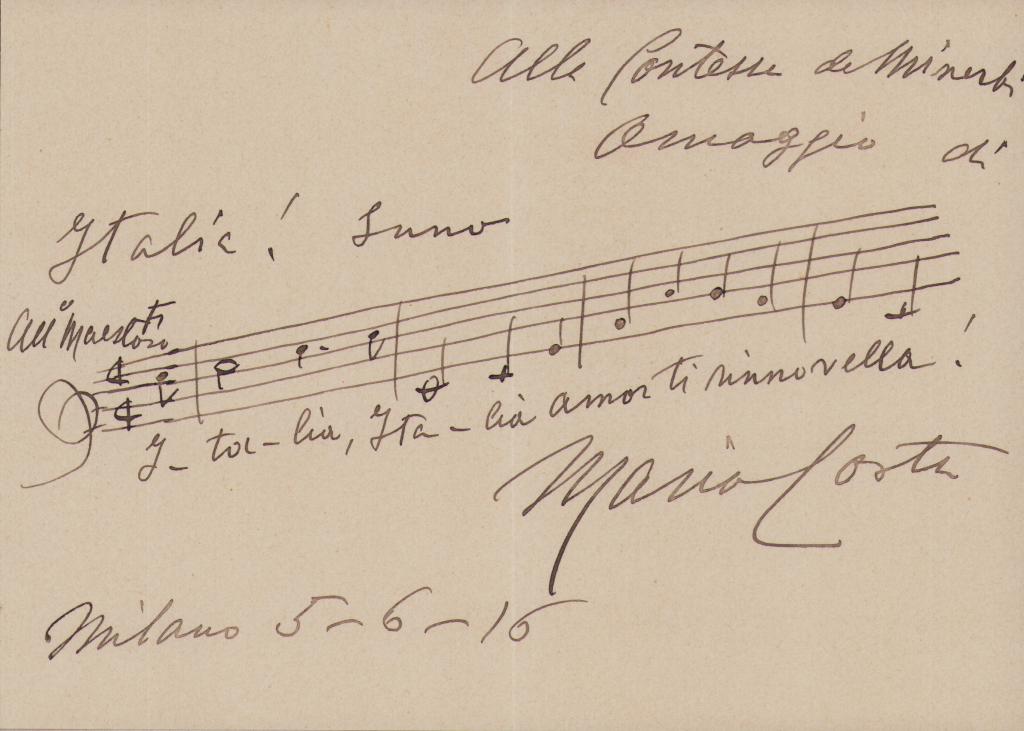 Alla Contessa de Minerbi
Omaggio di
Italia! Inno
All° Maestoso
I-ta-lia, Ita-lia amor ti rinnovella!
Mario Costa
Milano 5-6-16